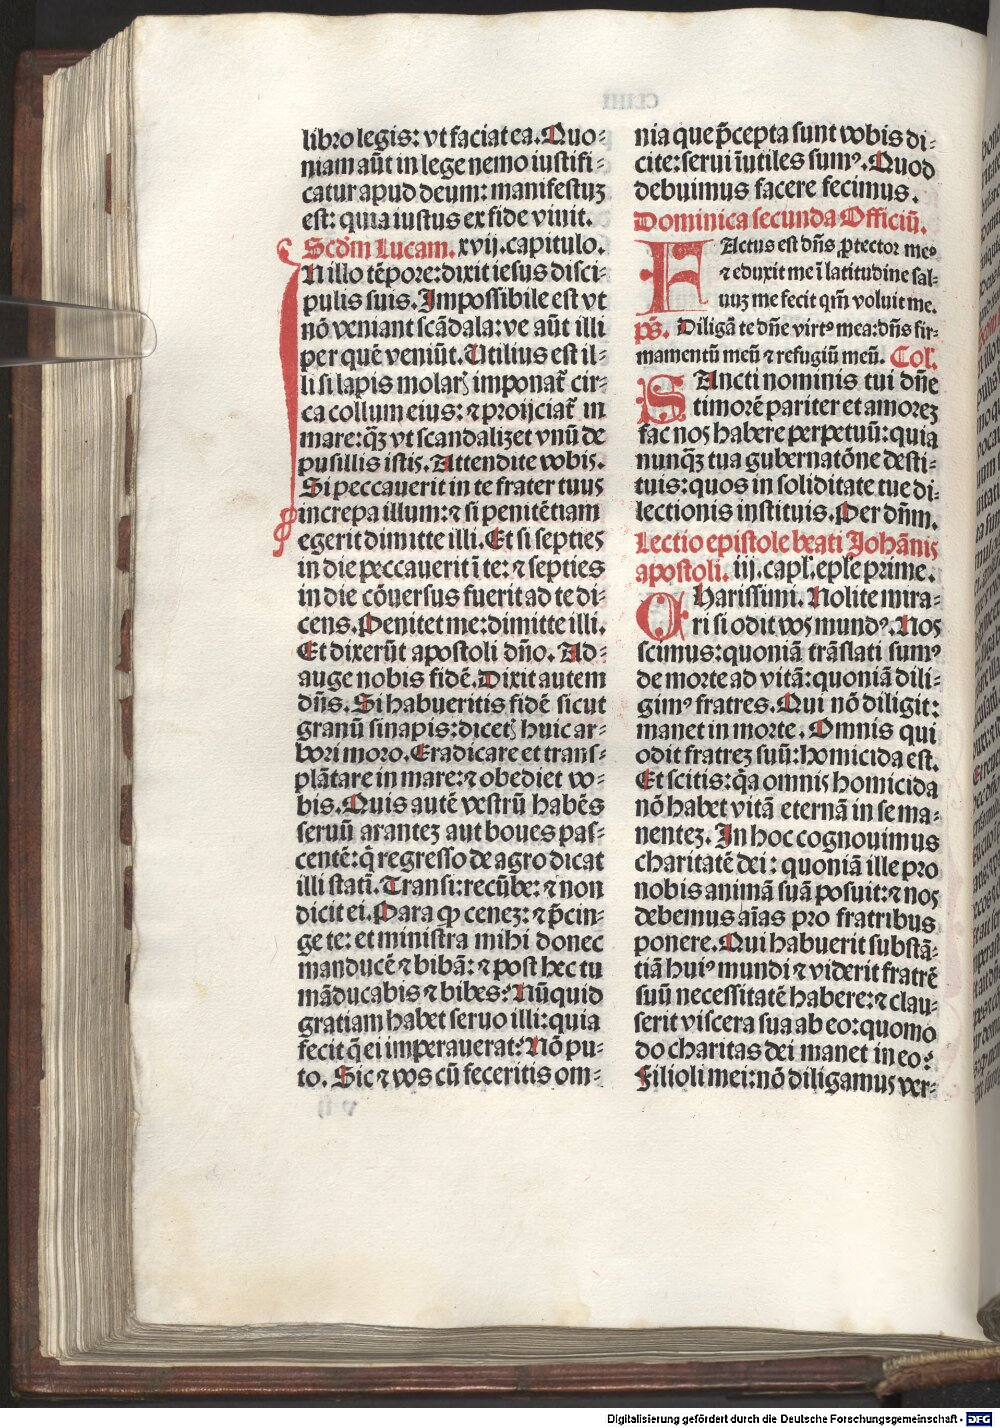 libro legis: vt faciat ea. Quo⸗
niam aūt in lege nemo iustifi⸗
catur apud deum: manifestuꝫ
est: quia iustus ex fide viuit.
Scd̄m Lucam. xvij. capitulo.
IN illo tēpore: dixit iesus disci⸗
pulis suis. Impossibile est vt
nō veniant scādala: ve aūt illi
per quē veniūt. Utilius est il⸗
li si lapis molarꝭ imponat̄ cir⸗
ca collum eius: ⁊ proijciat̄ in
mare: qꝫ̄ vt scandalizet vnū de
pusillis istis. Attendite vobis.
Si peccauerit in te frater tuus
increpa illum: ⁊ si penitētiam
egerit dimitte illi. Et si septies
in die peccauerit ī te: ⁊ septies
in die cōuersus fuerit ad te di⸗
cens. Penitet me: dimitte illi.
Et dixerūt apostoli dn̄o. Ad⸗
auge nobis fidē. Dixit autem
dn̄s. Si habueritis fidē sicut
granū sinapis: dicetꝭ huic ar⸗
bori moro. Eradicare et trans⸗
plātare in mare: ⁊ obediet vo⸗
bis. Quis autē vestrū habēs
seruū arantez aut boues pas⸗
centē: q̄ regresso de agro dicat
illi statī. Transi: recūbe: ⁊ non
dicit ei. Para qd̄ cenez: ⁊ p̄cin⸗
ge te: et ministra mihi donec
manducē ⁊ bibā: ⁊ post hec tu
māducabis ⁊ bibes? Nūquid
gratiam habet seruo illi: quia
fecit q̄ ei imperauerat? Nō pu⸗
to. Sic ⁊ vos cū feceritis om⸗
nia que p̄cepta sunt vobis di⸗
cite: serui īutiles sumꝰ. Quod
debuimus facere fecimus.
Dominica secunda Officiū.
FActus est dn̄s ꝓtector meꝰ
⁊ eduxit me ī latitudine sal⸗
uuꝫ me fecit qm̄ voluit me.
ps̄. Diligā te dn̄e virtꝰ mea: dn̄s fir⸗
mamentū meū ⁊ refugiū meū. Col.
SAncti nominis tui dn̄e
timorē pariter et amoreꝫ
fac nos habere perpetuū: quia
nunqꝫ̄ tua gubernatōne desti⸗
tuis: quos in soliditate tue di⸗
lectionis instituis. Per dn̄m.
Lectio epistole beati Johānis
apostoli. iij. capl. ep̄le prime.
CHarissimi. Nolite mira⸗
ri si odit vos mundꝰ. Nos
scimus: quoniā trāslati sumꝰ
de morte ad vitā: quoniā dili⸗
gimꝰ fratres. Qui nō diligit:
manet in morte. Omnis qui
odit fratreꝫ suū: homicida est.
Et scitis: q̄a omnis homicida
nō habet vitā eternā in se ma⸗
nenteꝫ. In hoc cognouimus
charitatē dei: quoniā ille pro
nobis animā suā posuit: ⁊ nos
debemus aīas pro fratribus
ponere. Qui habuerit substā⸗
tiā huiꝰ mundi ⁊ viderit fratrē
suū necessitatē habere: ⁊ clau⸗
serit viscera sua ab eo: quomo
do charitas dei manet in eo?
Filioli mei: nō diligamus ver⸗
Digitalisierung gefördert durch die Deutsche Forschungsgemeinschaft - DFG